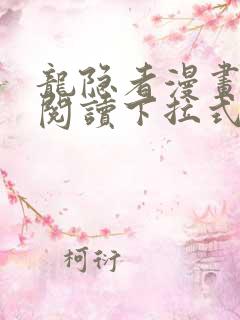 龍隐者漫畫
閱讀下拉式
柯衍